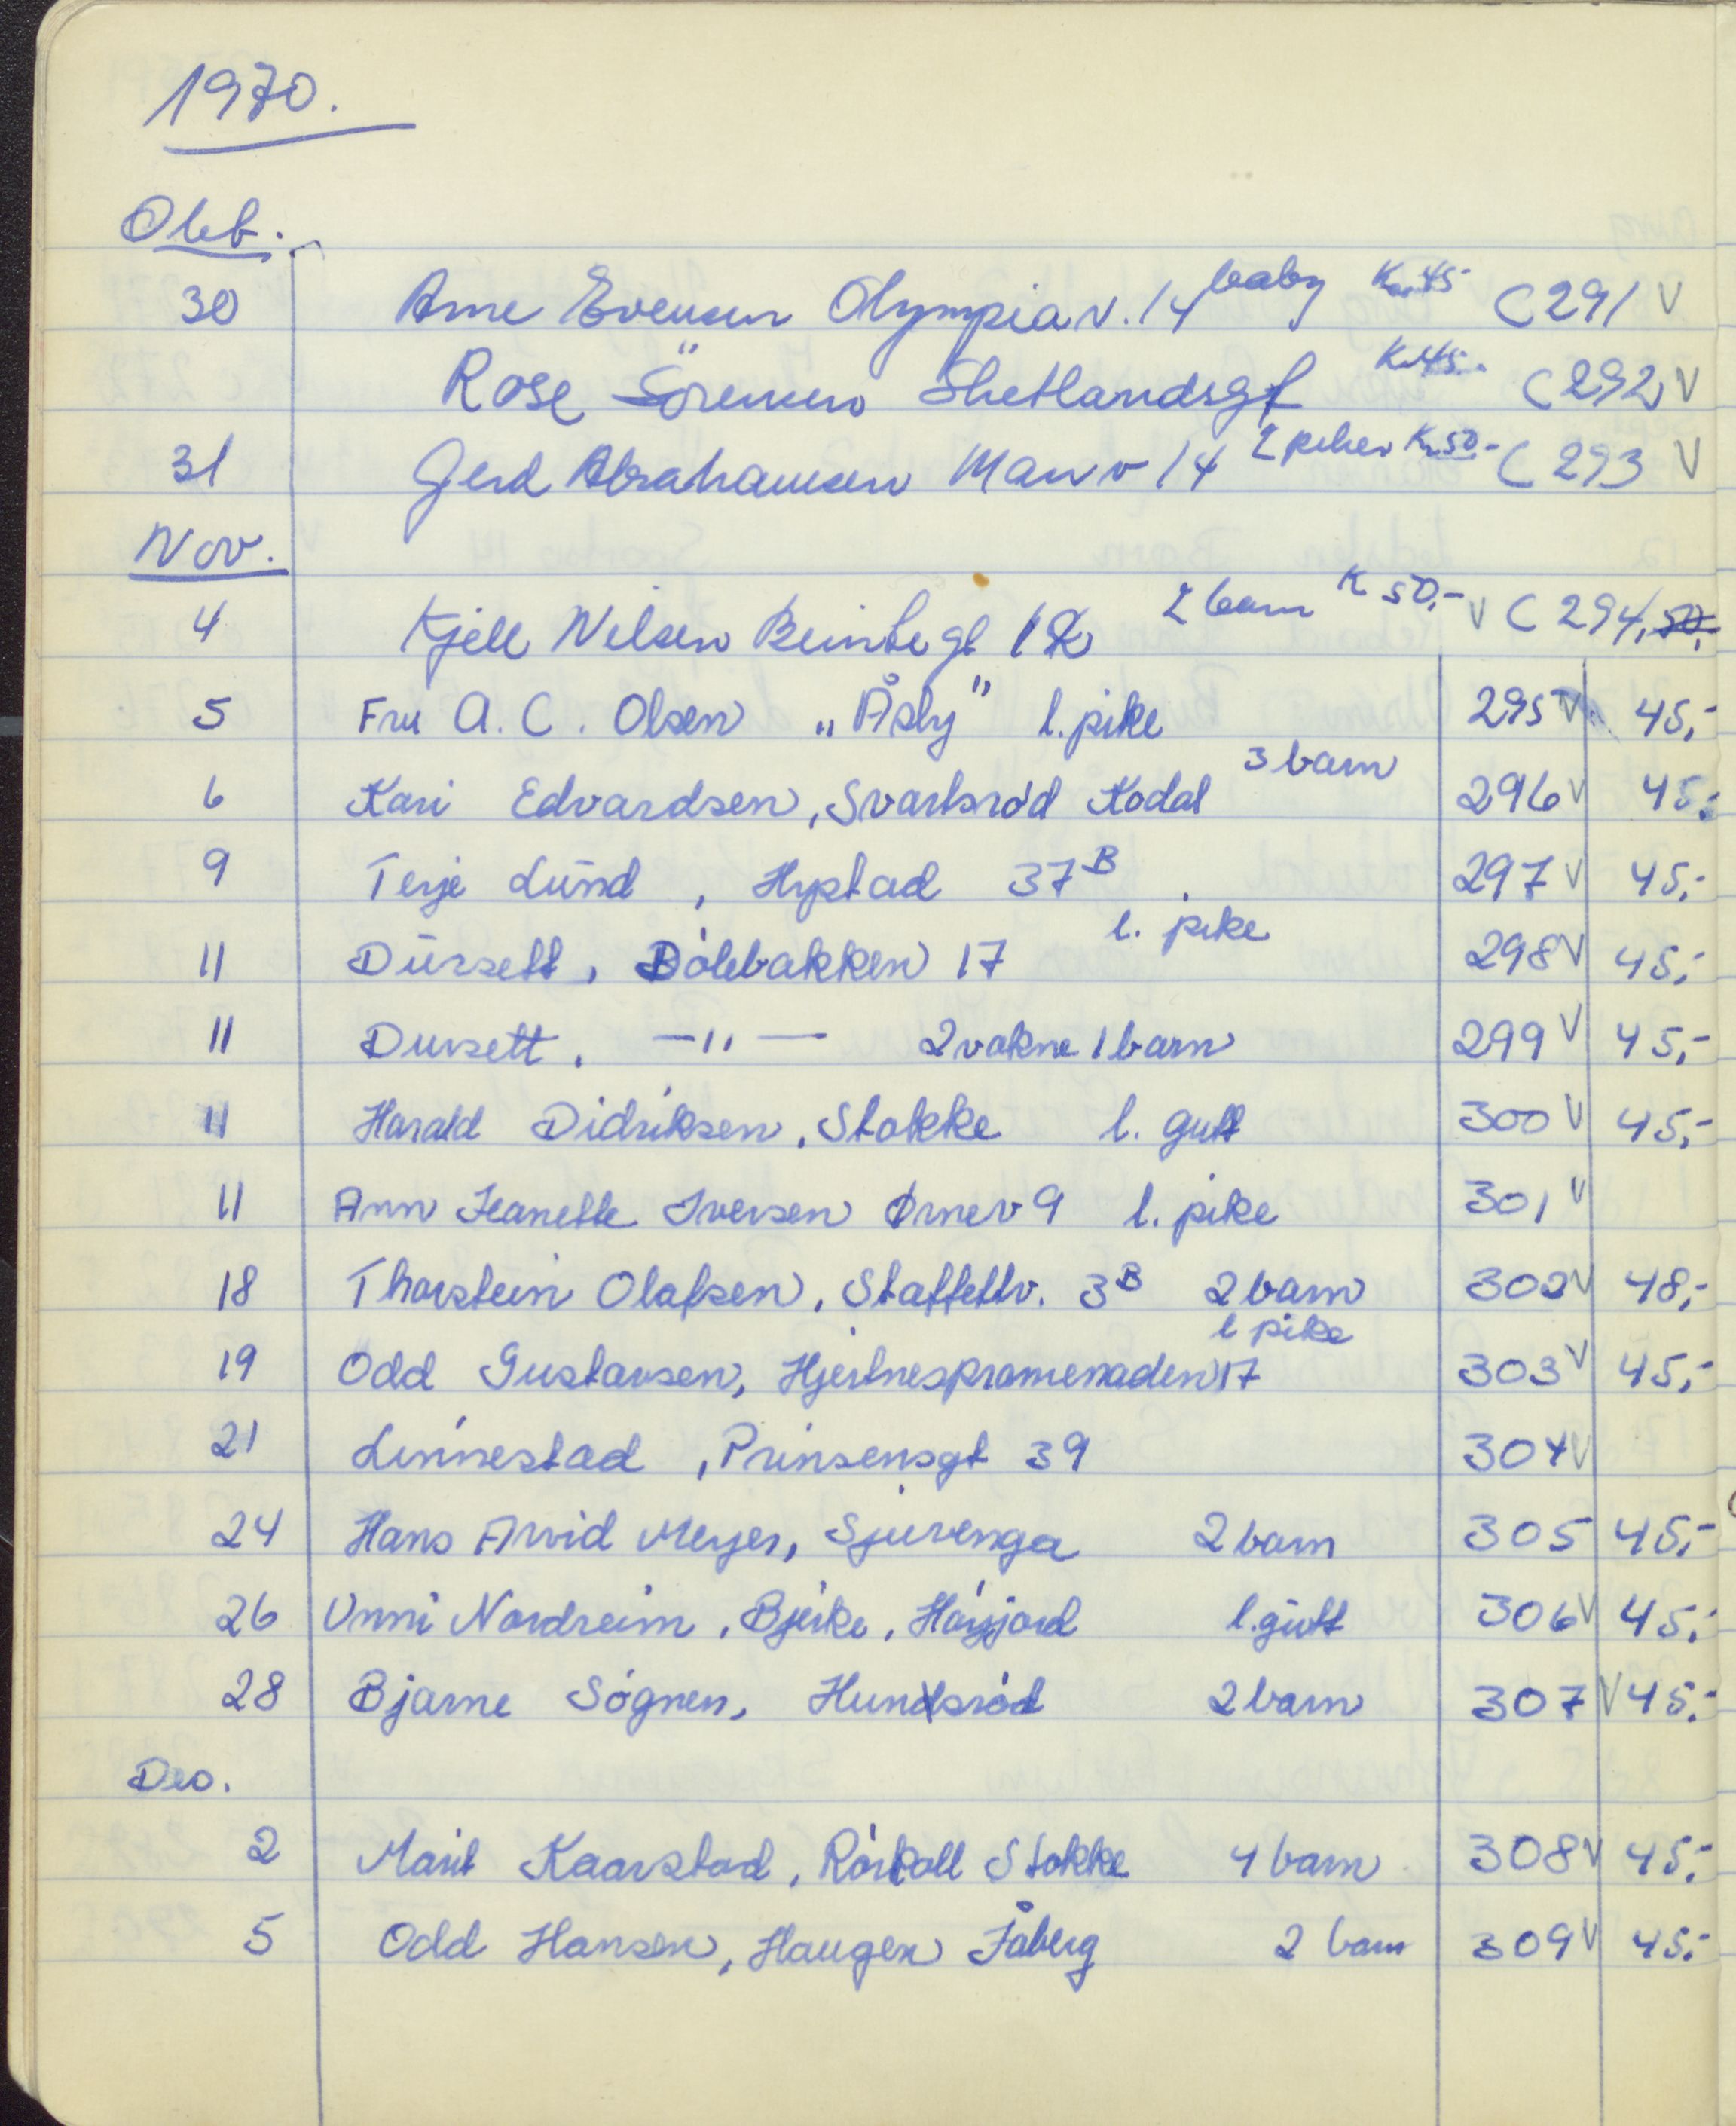 1970.
Okt.
30 Arne Evensen Olympiav. 14 baby Kr.45- C291 V
Rose Sörensen Shetlandsgt Kr.45.- C292 V
31 Gerd Abrahamsen Manv 14 2 piker Kr.50.- C293 V
Nov.
4 Kjell Nilsen gt 1 2 barn K 50,- V C294, 50,-
5 Fru A. C. Olsen „Åsly" l. pike 295 V 45,-
6 Kari Edvardsen, Svartsrød Kodal 3 barn 296 V 45,-
9 Terje Lund, Hystad 37B 297 V 45,-
11 Dursett, Dølebakken 17 l. pike 298 V 45,-
11 Dursett, —"— 2 vokne 1 barn 299 V 45,-
11 Harald Didriksen, Stokke l. gutt 300 V 45,-
11 Ann Jeanette Iversen Ørnev 9 l. pike 301 V
18 Thorstein Olafsen, Staffettv. 3B 2 barn 302 V 48,-
19 Odd Gustavsen, Hjertnespromenaden 17 l pike 303 V 45,-
21 Linnestad, Prinsensgt 39 304 V
24 Hans Arvid Meyer, Sjuvenga 2 barn 305 45,-
26 Unni Nordreim, Bjerke, Høyjord l. gutt 306 V 45,-
28 Bjarne Søgnen, Hundsrød 2 barn 307 V 45,-
Des.
2 Marit Kaarstad, Rørkoll Stokke 4 barn 308 V 45,-
5 Odd Hansen, Haugen Jåberg 2 barn 309 V 45,-